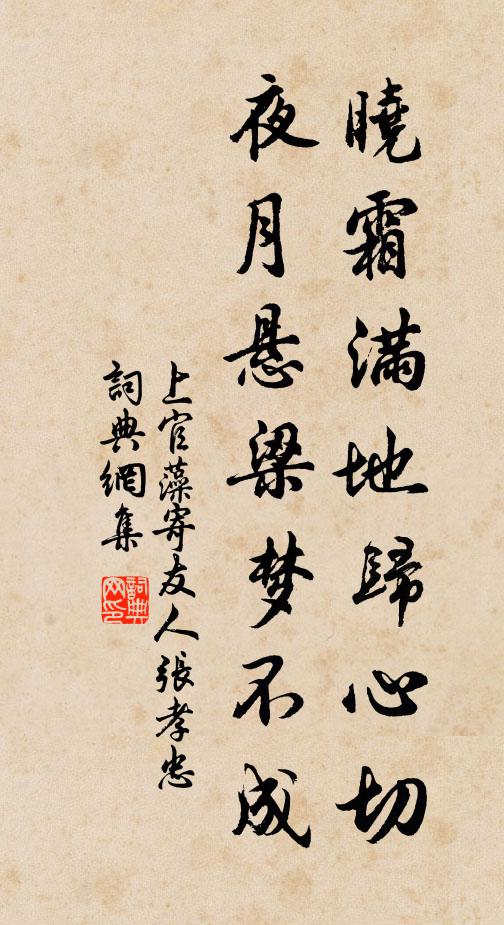 曉霜滿地歸心切
夜月悬梁梦不成
上官藻寄友人張孝忠
詞典網集
詞典网印